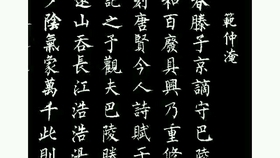 範仲淹
春滕子京謫守巴陵
和百廢具興乃重修
刻唐賢今人詩賦于
記之予觀夫巴陵勝
遠山吞長江浩浩湯
夕陰氣象萬千此則